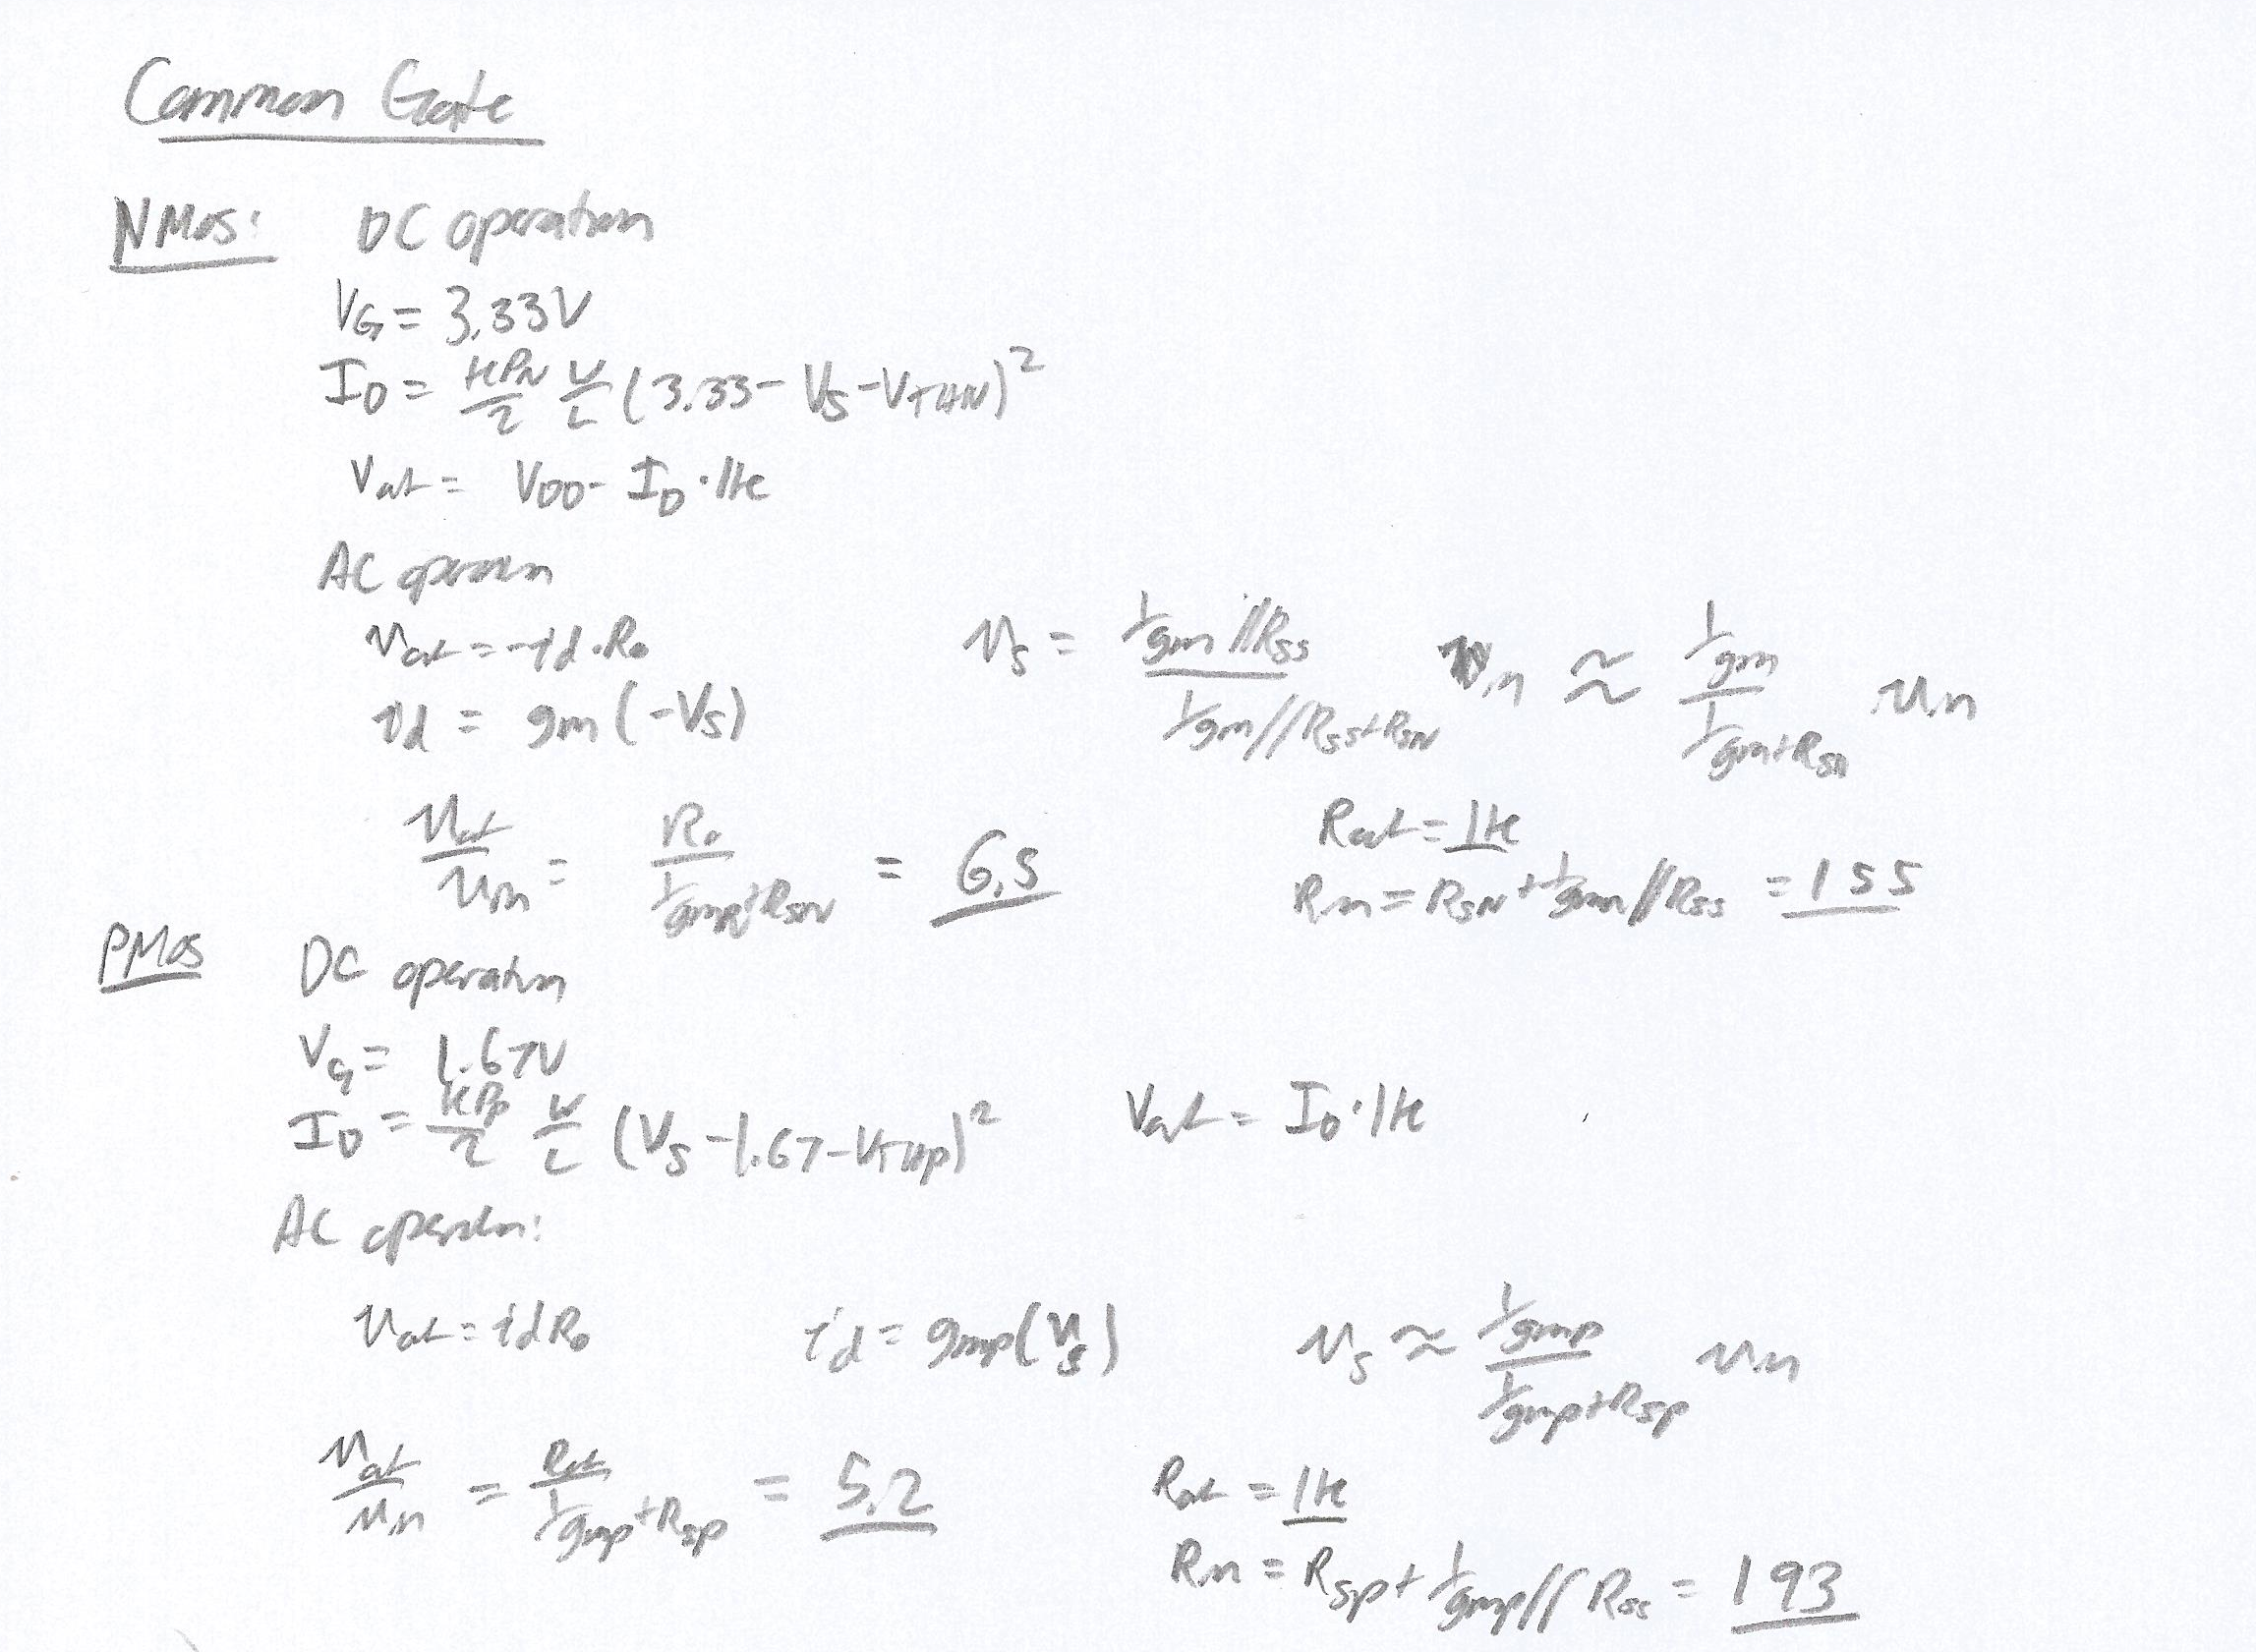 Common Gate
NMOS: DC operation
VG = 3.33V
ID = KPN/2 W/L (3.33 - VS - VTHN)²
Vout = VDD - ID · 1k
AC operation
vout = -id · Ro
vs = 1/gm // Rss / 1/gm // Rss + Rsn vin ≈ 1/gm / 1/gm + Rsn vin
id = gm (-VS)
vout/vin = Ro / 1/gmn + Rsn = 6.5
Rout = 1k
Rin = Rsn + 1/gmn // Rss = 155
PMOS DC operation
VG = 1.67V
ID = KPp/2 W/L (VS - 1.67 - VTHp)² Vout = ID · 1k
AC operation:
vout = id Ro id = gmp(vs) vs ≈ 1/gmp / 1/gmp + Rsp vin
vout/vin = Rout / 1/gmp + Rsp = 5.2
Rout = 1k
Rin = Rsp + 1/gmp // Rss = 193